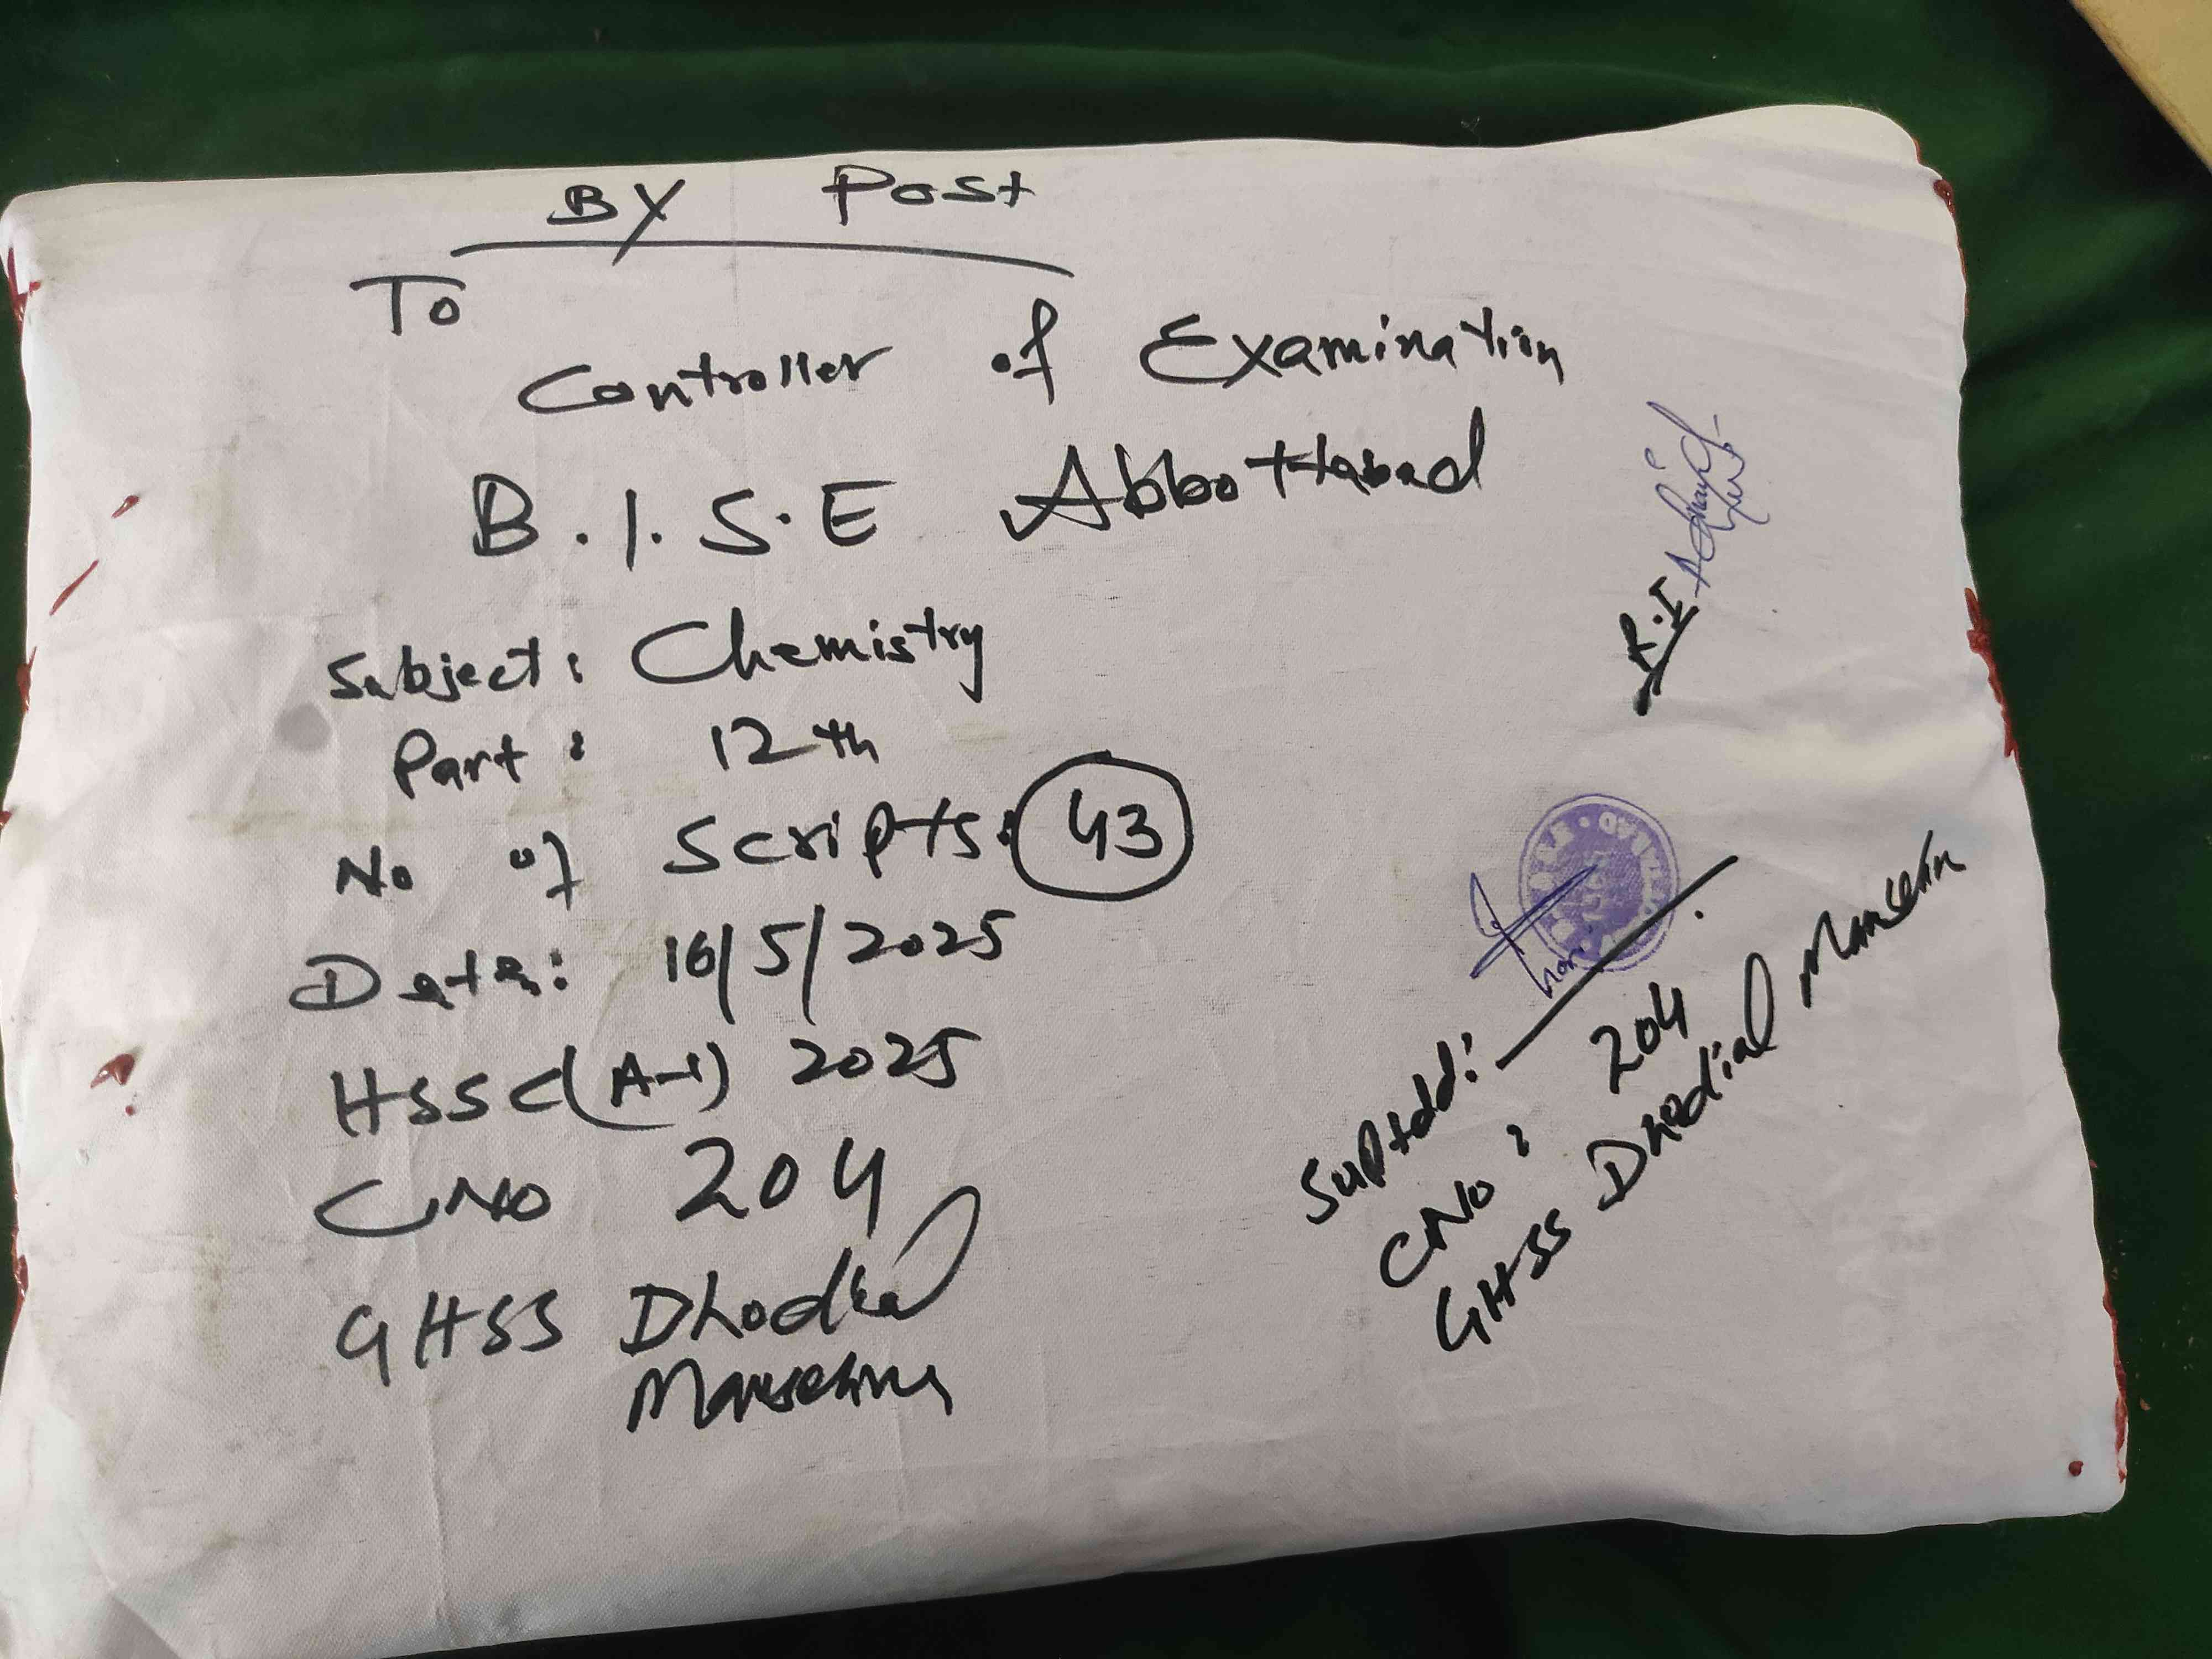 BY Post
To
Controller of Examination
B.I.S.E Abbottabad
Subject: Chemistry
Part: 12th
No of Scripts: 43
Date: 16/5/2025
HSSC(A-1) 2025
CNO 204
GHSS Dhodial
Mansehra
R.I
Suptdd:
CNo: 204
GHSS Dhodial Mansehra